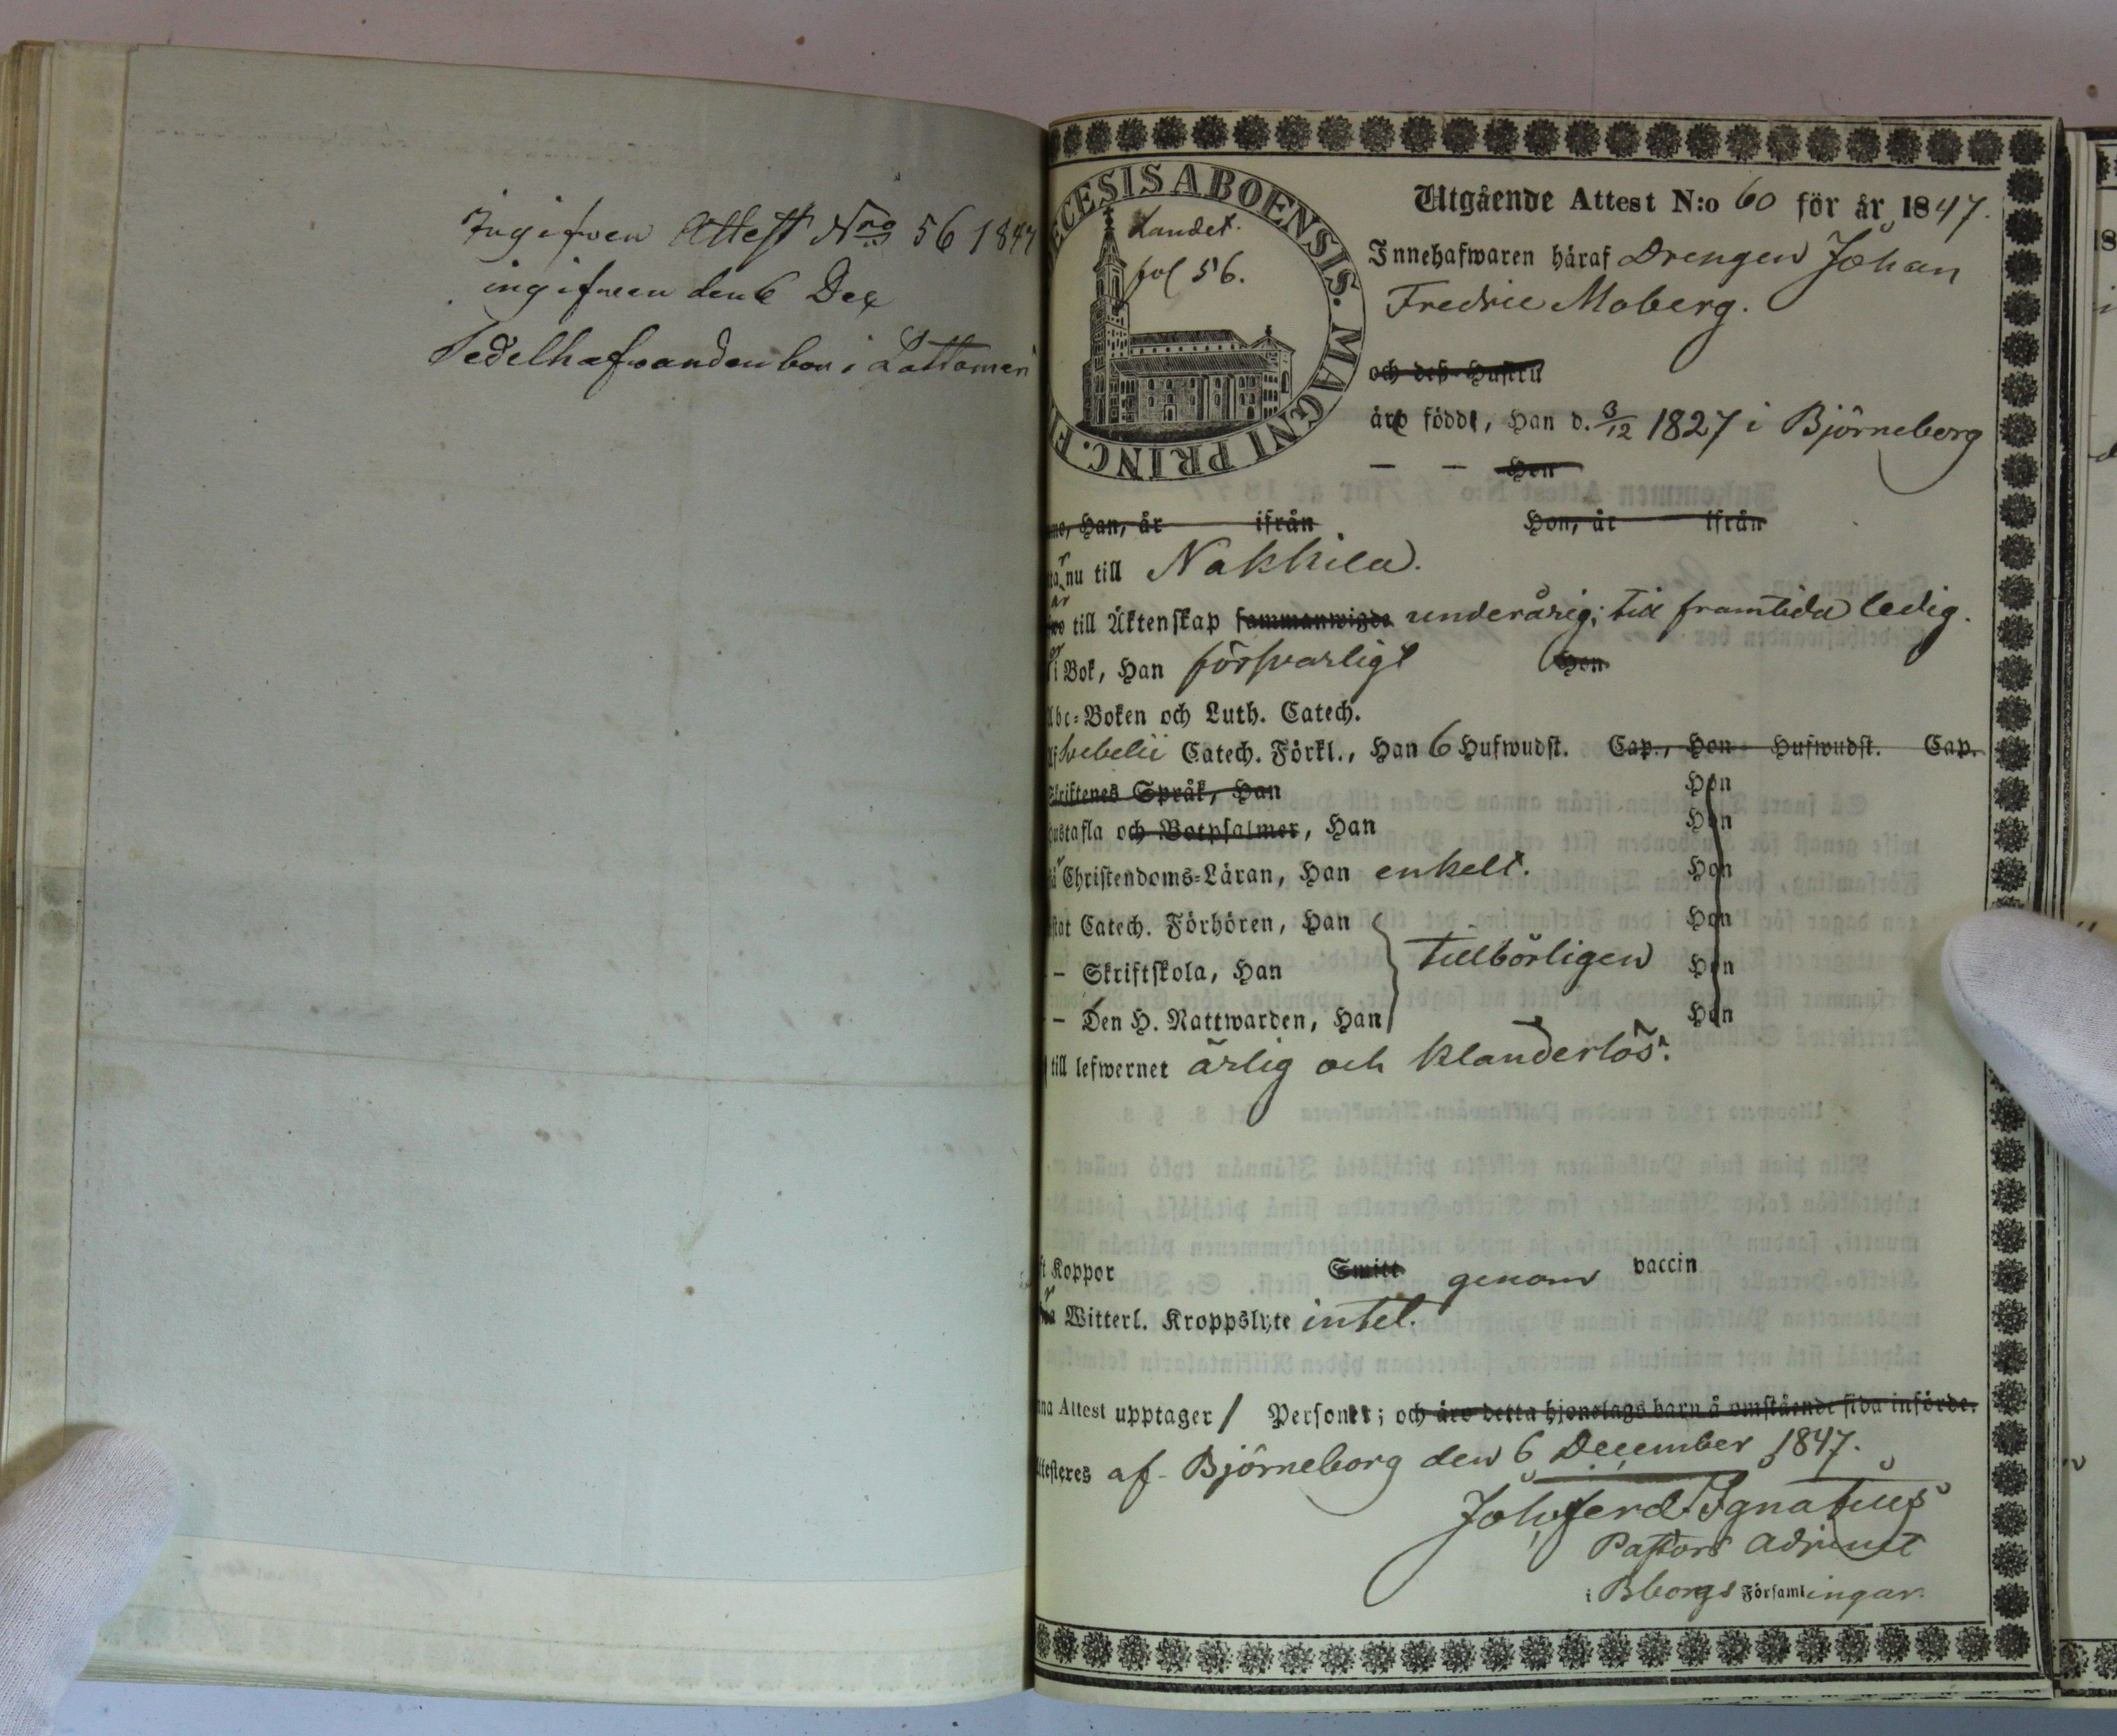 Ingifven Attest Nro 56 1847
ingifven den 6 Dec
Sedelhafvanden bor i Lattomeri
ECESIS ABOENSIS. MAGNI PRINC. F
Landet.
fol 56.
Utgående Attest N:o 60 för år 1847.
Innehafwaren häraf Drengen Johan
Fredric Moberg.
och deß Hustru
äro födde, Han d. 3/12 1827 i Björneborg
— — Hon
Han, år ifrån Hon, år ifrån
nu till Nakkila.
är
till Äktenskap sammanwigde underårig; till framtida ledig.
i Bok, Han försvarligt Hon
Abc-Boken och Luth. Catech.
Svebelii Catech. Förkl., Han 6 Hufwudst. Cap., Hon Hufwudst. Cap.
Skriftenes Språk, Han Hon
Hustafla och Botpsalmer, Han Hon
Christendoms-Läran, Han enkelt. Hon
Catech. Förhören, Han Hon
— Skriftskola, Han tillbörligen Hon
— Den H. Nattwarden, Han Hon
till lefwernet ärlig och klanderlös.
Koppor Smitt genom vaccin
Witterl. Kroppslyte intet.
Attest upptager 1 Personer; och äro detta hjonelags barn å omstående sida införde.
Attesteres af Björneborg den 6 December 1847.
Joh. Ferd. Ignatius
Pastors Adjunct
i Bborgs Församlingar.